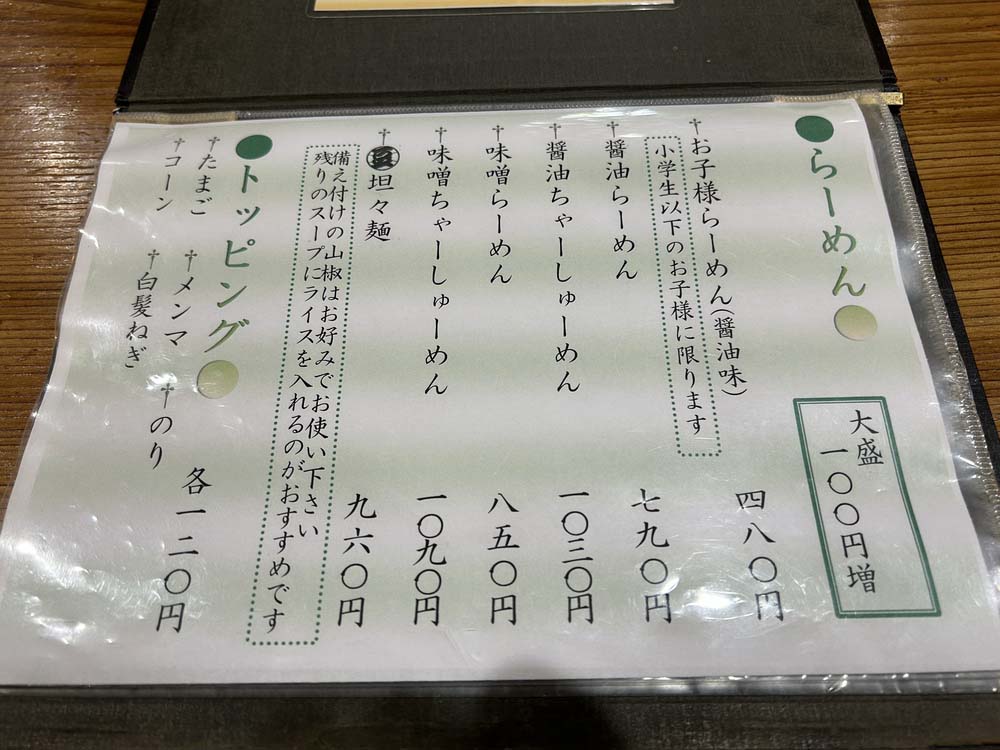 らーめん
大盛
一〇〇円増
†お子様らーめん(醤油味) 四八〇円
小学生以下のお子様に限ります
†醤油らーめん 七九〇円
†醤油ちゃーしゅーめん 一〇三〇円
†味噌らーめん 八五〇円
†味噌ちゃーしゅーめん 一〇九〇円
†坦々麺 九六〇円
備え付けの山椒はお好みでお使い下さい
残りのスープにライスを入れるのがおすすめです
トッピング
†たまご †メンマ †のり 各一二〇円
†コーン †白髪ねぎ